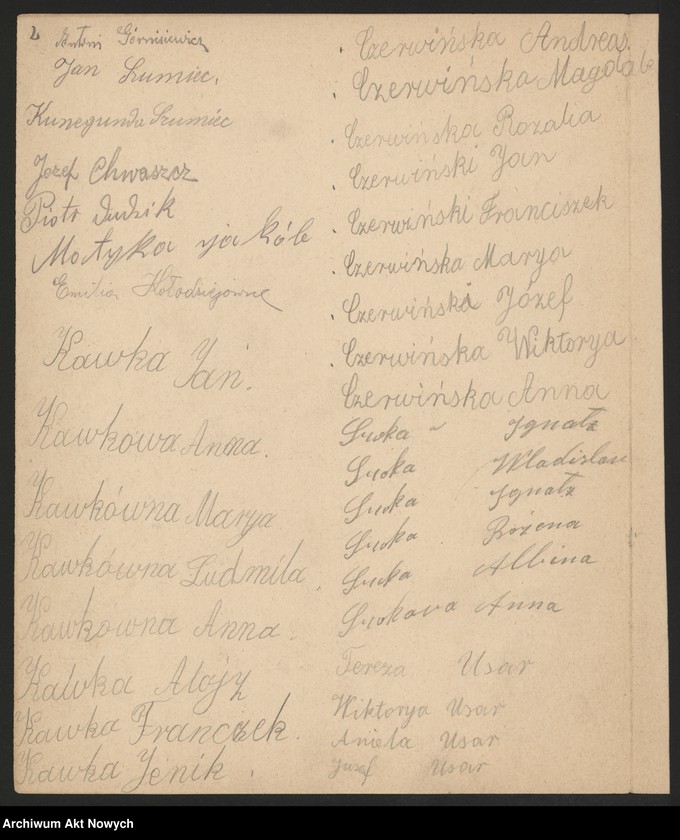 Antoni Górnisiewicz
Jan Szumiec.
Kunegunda Szumiec
Jozef Chwaszcz
Piotr Dudzik
Motyka Jakób
Emilia Kołodziejówne
Kawka Jan.
Kawkowa Anna.
Kawkówna Marya
Kawkówna Ludmila
Kawkowna Anna.
Kawka Alojzy
Kawka Franczek.
Kawka Jenik.
Czerwińska Andreas
Czerwińska Magdale
Czerwińska Rozalia
Czerwiński Jan
Czerwiński Franciszek
Czerwińska Marya
Czerwiński Józef
Czerwińska Wiktorya
Czerwińska Anna
Ignatz
Wladislau
Ignatz
Božena
Albina
Anna
Tereza Usar
Wiktorya Usar
Aniela Usar
Juzef Usar
Archiwum Akt Nowych